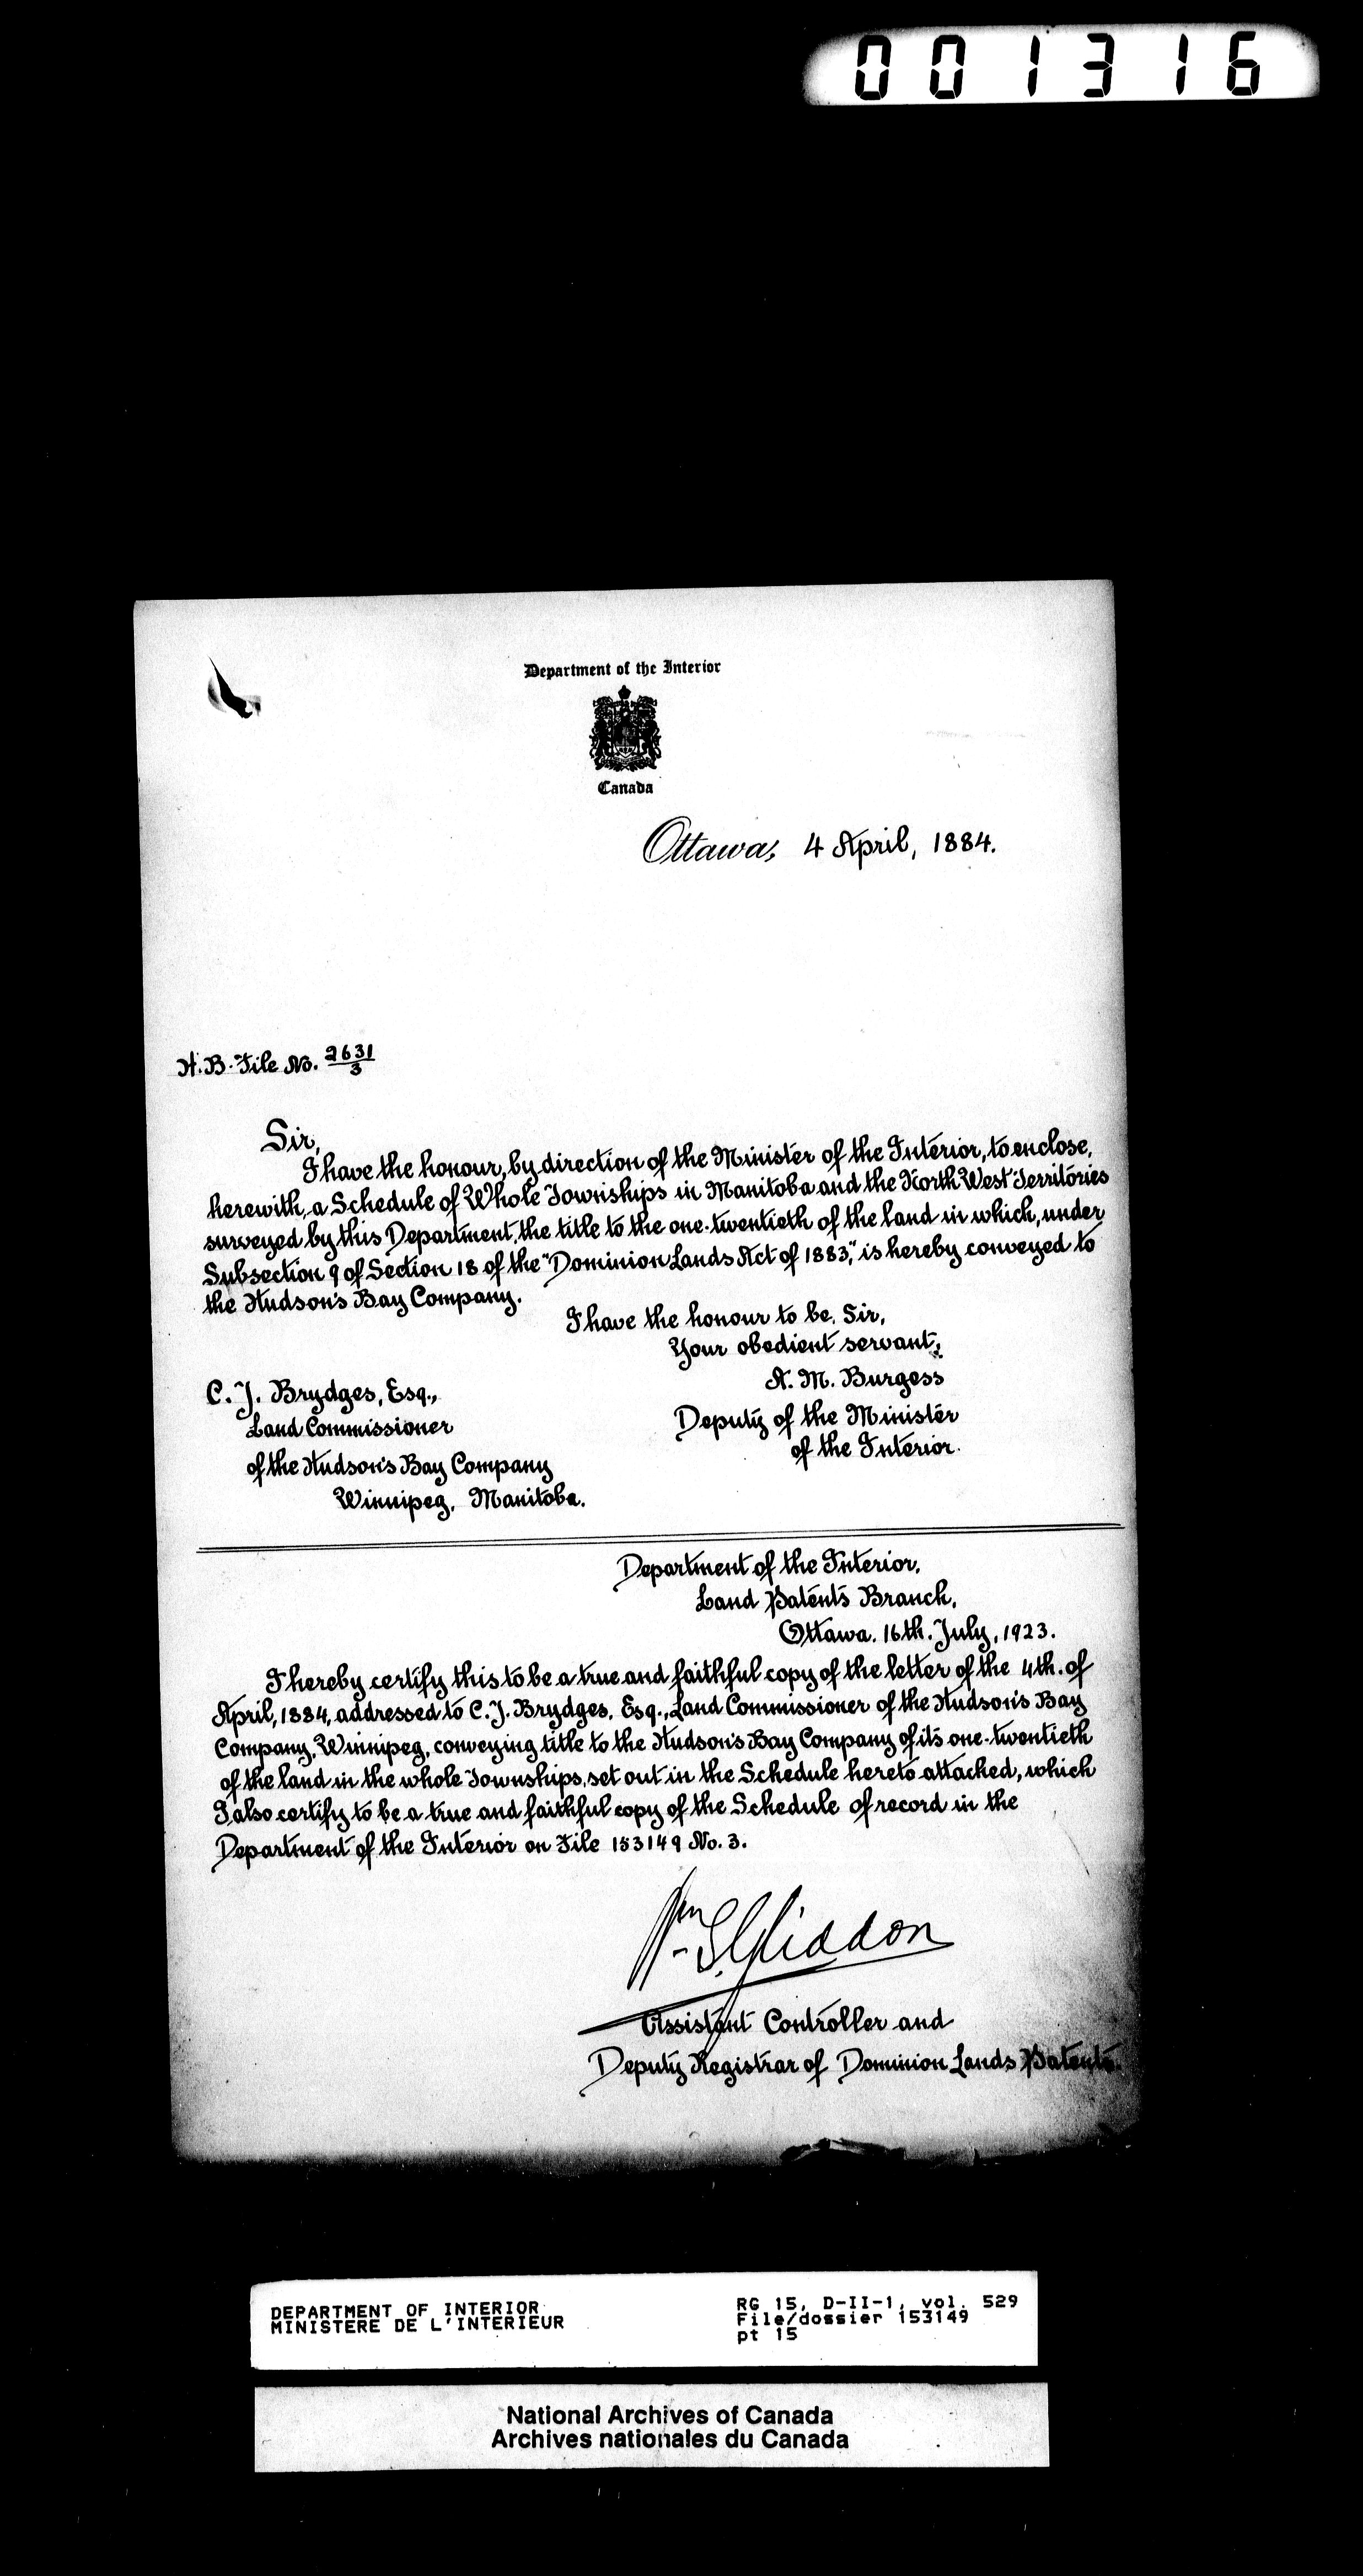 001316
Department of the Interior
Canada
Ottawa, 4 April, 1884.
H.B. File No. 2631/3
Sir,
I have the honour, by direction of the Minister of the Interior, to enclose,
herewith, a Schedule of Whole Townships in Manitoba and the North West Territories
surveyed by this Department, the title to the one-twentieth of the land in which, under
Subsection 9 of Section 18 of the "Dominion Lands Act of 1883," is hereby conveyed to
the Hudson's Bay Company.
I have the honour to be, Sir,
Your obedient servant,
A. M. Burgess
Deputy of the Minister
of the Interior.
C. J. Brydges, Esq.,
Land Commissioner
of the Hudson's Bay Company
Winnipeg, Manitoba.
Department of the Interior,
Land Patents Branch,
Ottawa. 16th. July, 1923.
I hereby certify this to be a true and faithful copy of the letter of the 4th. of
April, 1884, addressed to C. J. Brydges, Esq., Land Commissioner of the Hudson's Bay
Company, Winnipeg, conveying title to the Hudson's Bay Company of its one-twentieth
of the land in the whole Townships, set out in the Schedule hereto attached, which
I also certify to be a true and faithful copy of the Schedule of record in the
Department of the Interior on File 153149 No. 3.
Assistant Controller and
Deputy Registrar of Dominion Lands Patents.
DEPARTMENT OF INTERIOR
MINISTERE DE L'INTERIEUR
RG 15, D-II-1, vol. 529
File/dossier 153149
pt 15
National Archives of Canada
Archives nationales du Canada